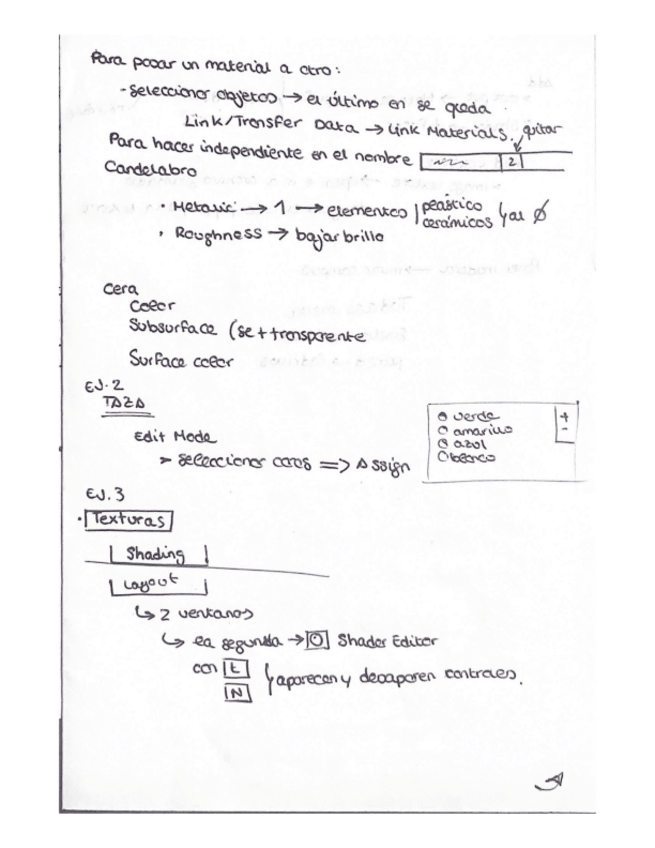 Para pasar un material a otro:
- Seleccionar objetos → el último en se queda.
Link/Transfer Data → Link Materials.
quitar
Para hacer independiente en el nombre 2
Candelabro
• Metalic → 1 → elementos plástico cerámicos al Ø
• Roughness → bajar brillo
Cera
Color
Subsurface (se + transparente
Surface color
EJ.2
TAZA
verde
amarillo
azul
blanco
+
-
Edit Mode
> seleccionar caras => Assign
EJ.3
• Texturas
Shading
Layout
↳ 2 ventanas
↳ la segunda → Shader Editor
con t
N
aparecen y desaparen controles.